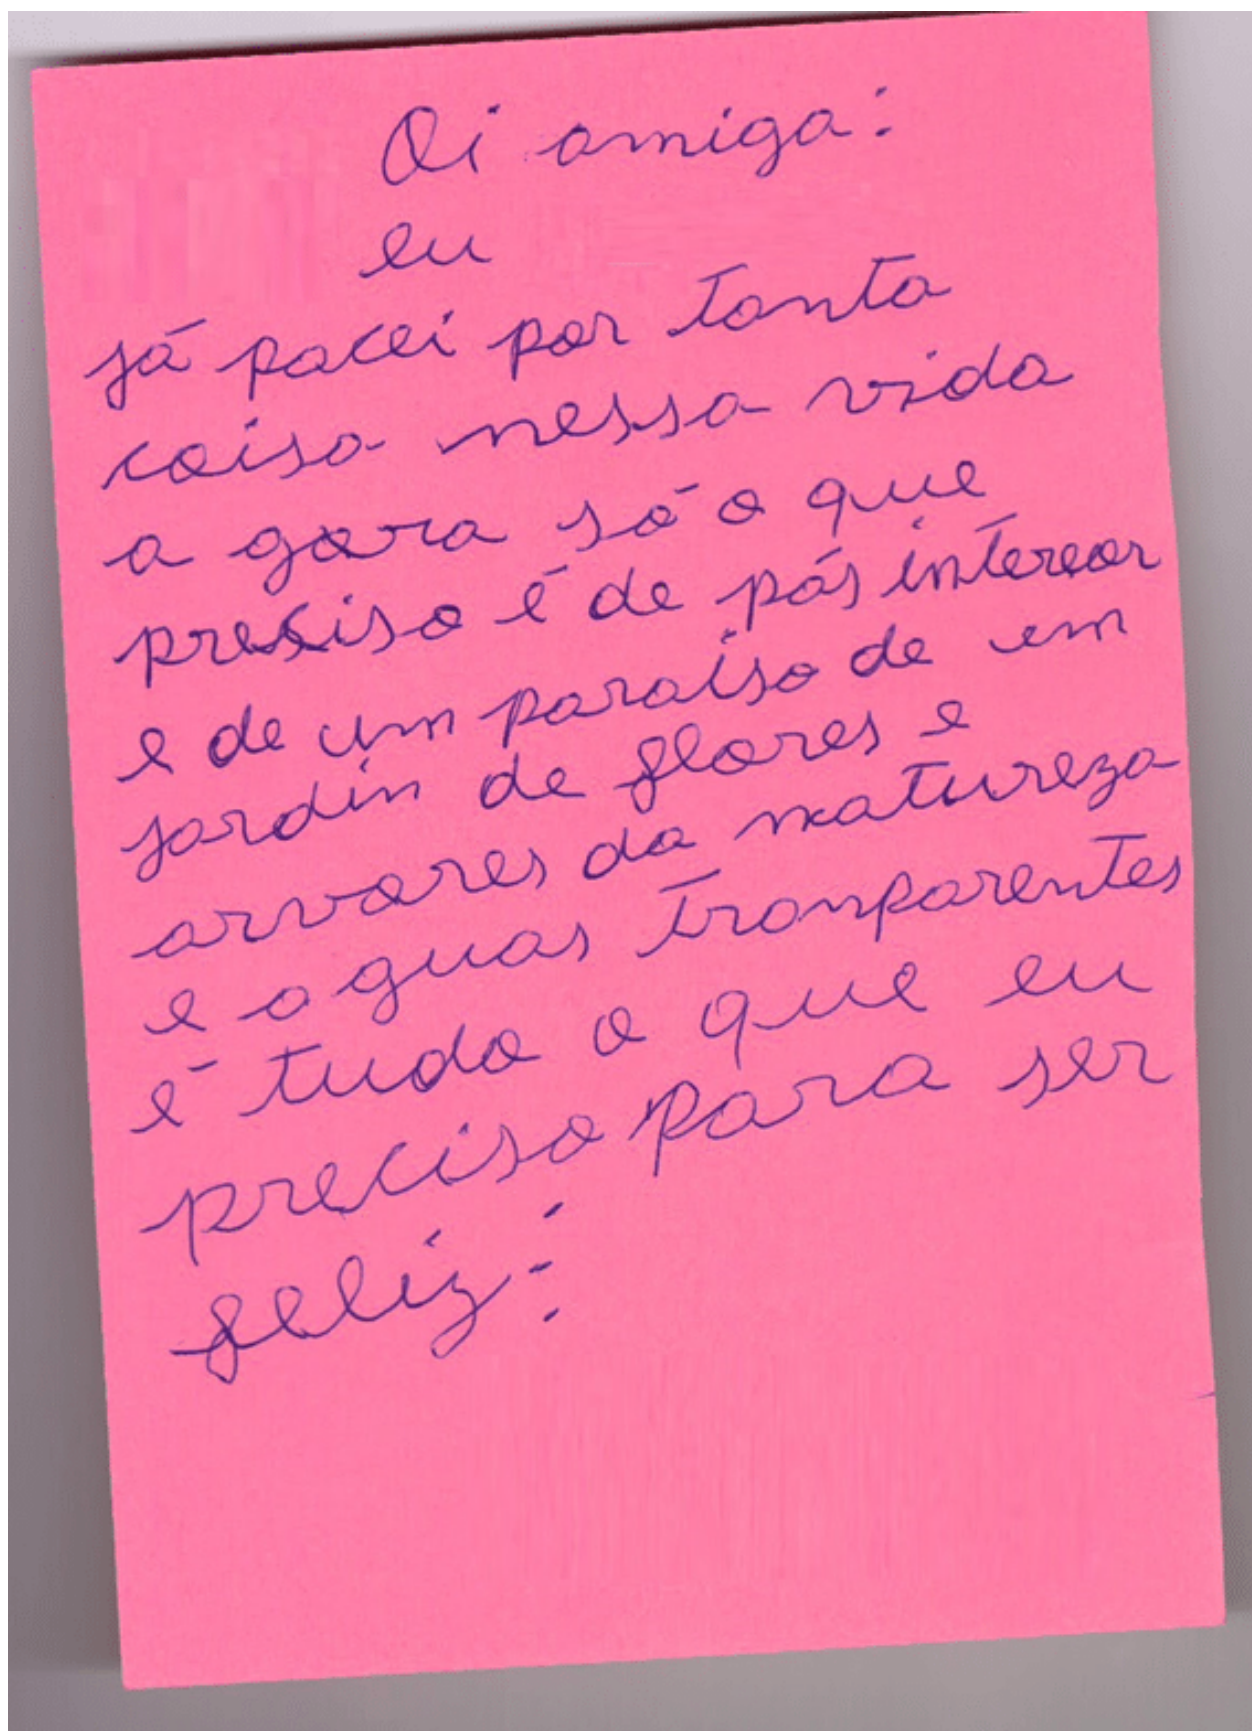 Oi amiga:
eu
já pacei por tanta
coisa nessa vida
a gora só o que
preciso é de pás interior
e de um paraiso de um
jardin de flores e
arvores da natureza
e aguas tranparentes
é tudo o que eu
preciso para ser
feliz: